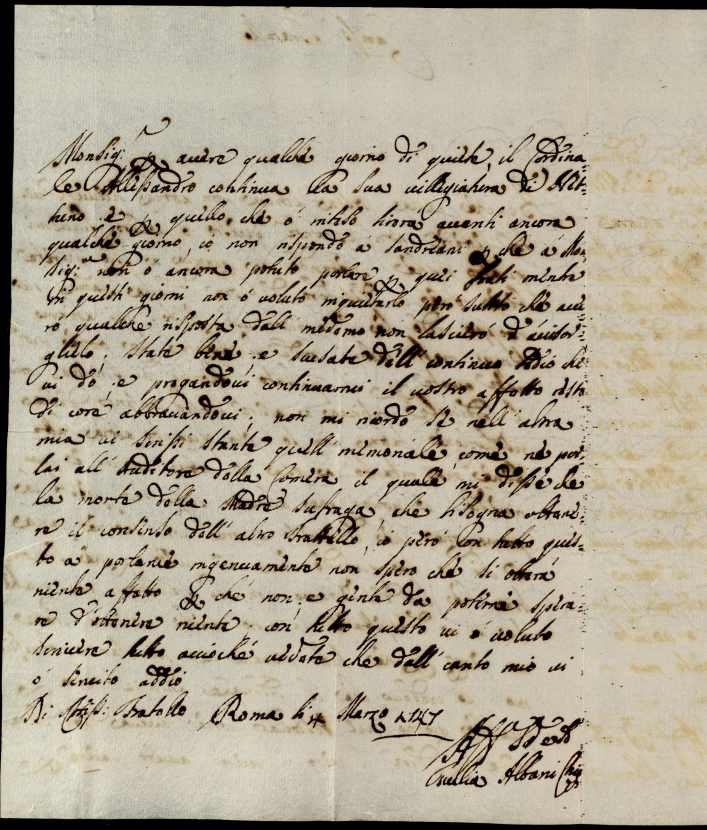 Monsig:r p avere qualche giorno di quiete, il Cardina
le Allessandro continua la sua villegiatura di Net-
tuno e p quello che ó inteso tirará avanti ancora
qualche giorno, io non rispondo a Sandreani p che a Mon
Sig:r non ó ancora potuto parlare p quei
in questi giorni non ó voluto inquietarlo peró subito che ave
ró qualche risposta dall medemo non lasceró d'avisar-
glielo; state bene e scusate dell continuo tedio che
vi dó e pregandovi continuarmi il vostro affetto resto
di core abbraciandovi; non mi ricordo se nell altra
mia vi scrissi stante quell memoriale come ne par,
lai all Auditore della Camera il quale mi disse che
la morte della Madre sufraga che bisogna ottene-
re il consenso dell altro Frattello, io peró con tutto ques-
to a parlarvi ingenuamente non spero che si otterá
niente affatto p che non e gente da poterne spera-
re d'ottenere niente con tutto questo vi ó voluto
scrivere tutto acioché vediate che dall canto mio vi
ó servito addio
Di Roma li 4 Marzo 1747
Aff
Albani Chigi